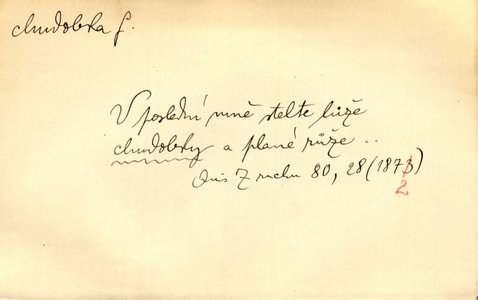 chudobka f.
V poslední mně stelte lůže
chudobky a plané růže . .
Z ruchu 80, 28 (1873)
2